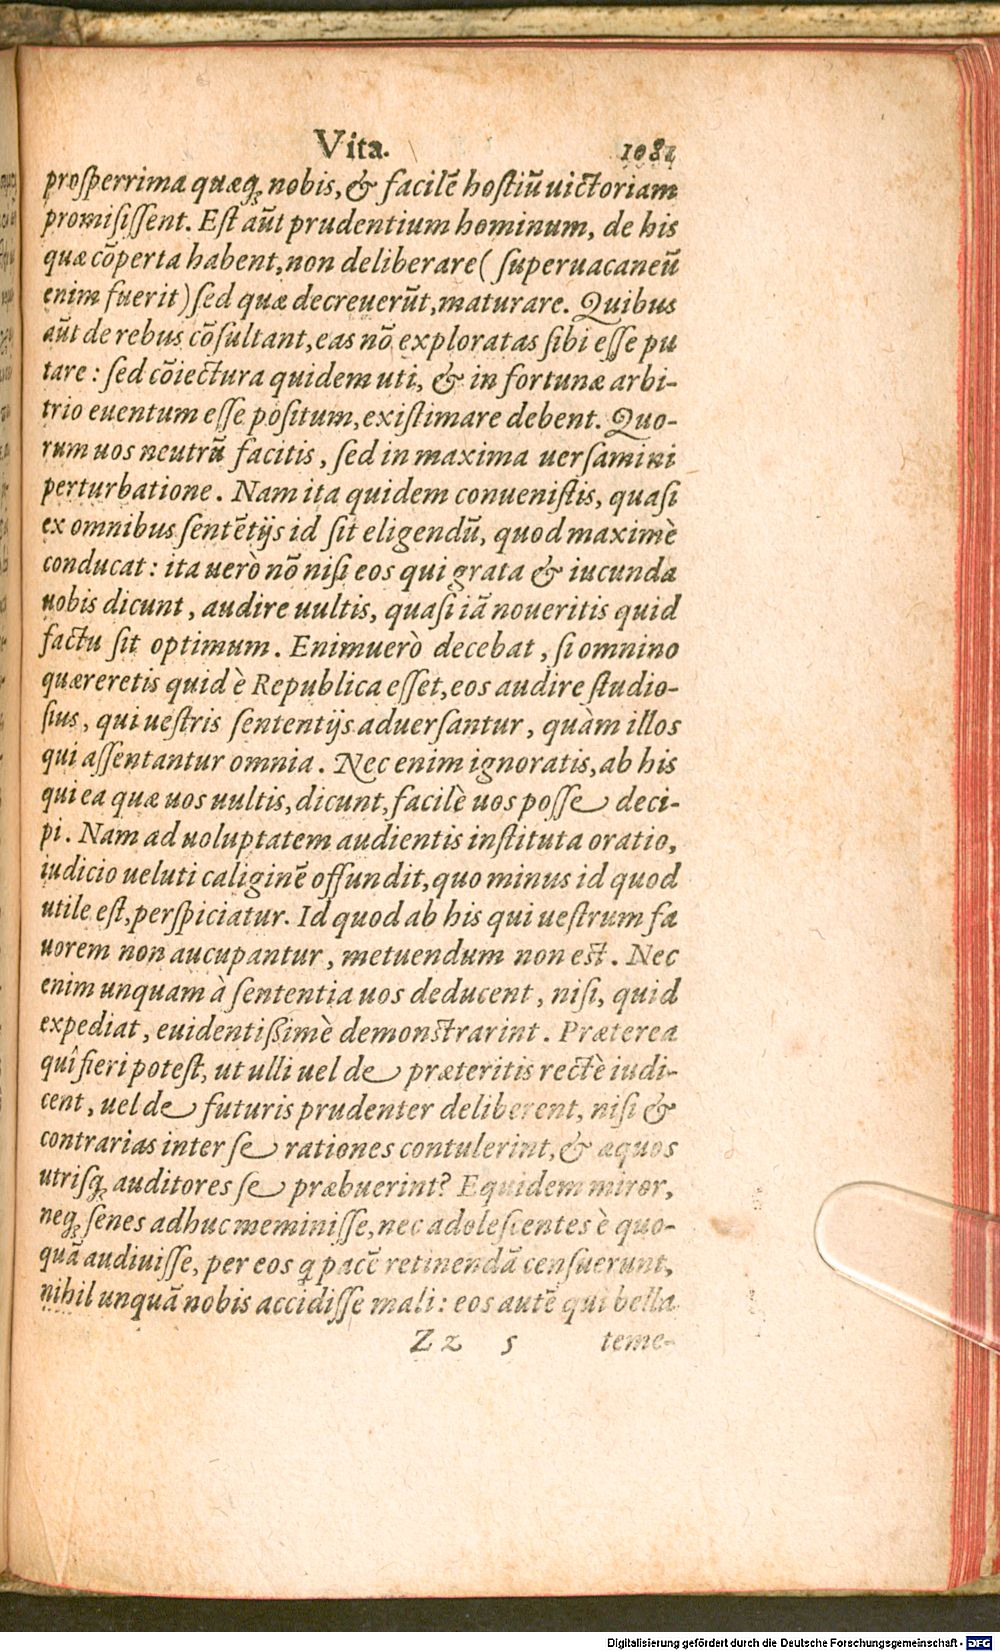 Vita. 1081
prosperrima quæq; nobis, & facilē hostiū uictoriam
promisissent. Est aūt prudentium hominum, de his
quæ cōperta habent, non deliberare (superuacaneū
enim fuerit) sed quæ decreuerūt, maturare. Quibus
aūt de rebus cōsultant, eas nō exploratas sibi esse pu
tare: sed cōiectura quidem uti, & in fortunæ arbi-
trio euentum esse positum, existimare debent. Quo-
rum uos neutrū facitis, sed in maxima uersamini
perturbatione. Nam ita quidem conuenistis, quasi
ex omnibus sentētijs id sit eligendū, quod maximè
conducat: ita uerò nō nisi eos qui grata & iucunda
uobis dicunt, audire uultis, quasi iā noueritis quid
factu sit optimum. Enimuerò decebat, si omnino
quæreretis quid è Republica esset, eos audire studio-
sius, qui uestris sententijs aduersantur, quàm illos
qui assentantur omnia. Nec enim ignoratis, ab his
qui ea quæ uos uultis, dicunt, facilè uos posse deci-
pi. Nam ad uoluptatem audientis instituta oratio,
iudicio ueluti caliginē offundit, quo minus id quod
utile est, perspiciatur. Id quod ab his qui uestrum fa
uorem non aucupantur, metuendum non est. Nec
enim unquam à sententia uos deducent, nisi, quid
expediat, euidentißimè demonstrarint. Præterea
quî fieri potest, ut ulli uel de præteritis rectè iudi-
cent, uel de futuris prudenter deliberent, nisi &
contrarias inter se rationes contulerint, & æquos
utrisq; auditores se præbuerint? Equidem miror,
neq; senes adhuc meminisse, nec adolescentes è quo-
quā audiuisse, per eos q pacē retinendā censuerunt,
nihil unquā nobis accidisse mali: eos autē qui bella
Zz 5 teme-
Digitalisierung gefördert durch die Deutsche Forschungsgemeinschaft - DFG